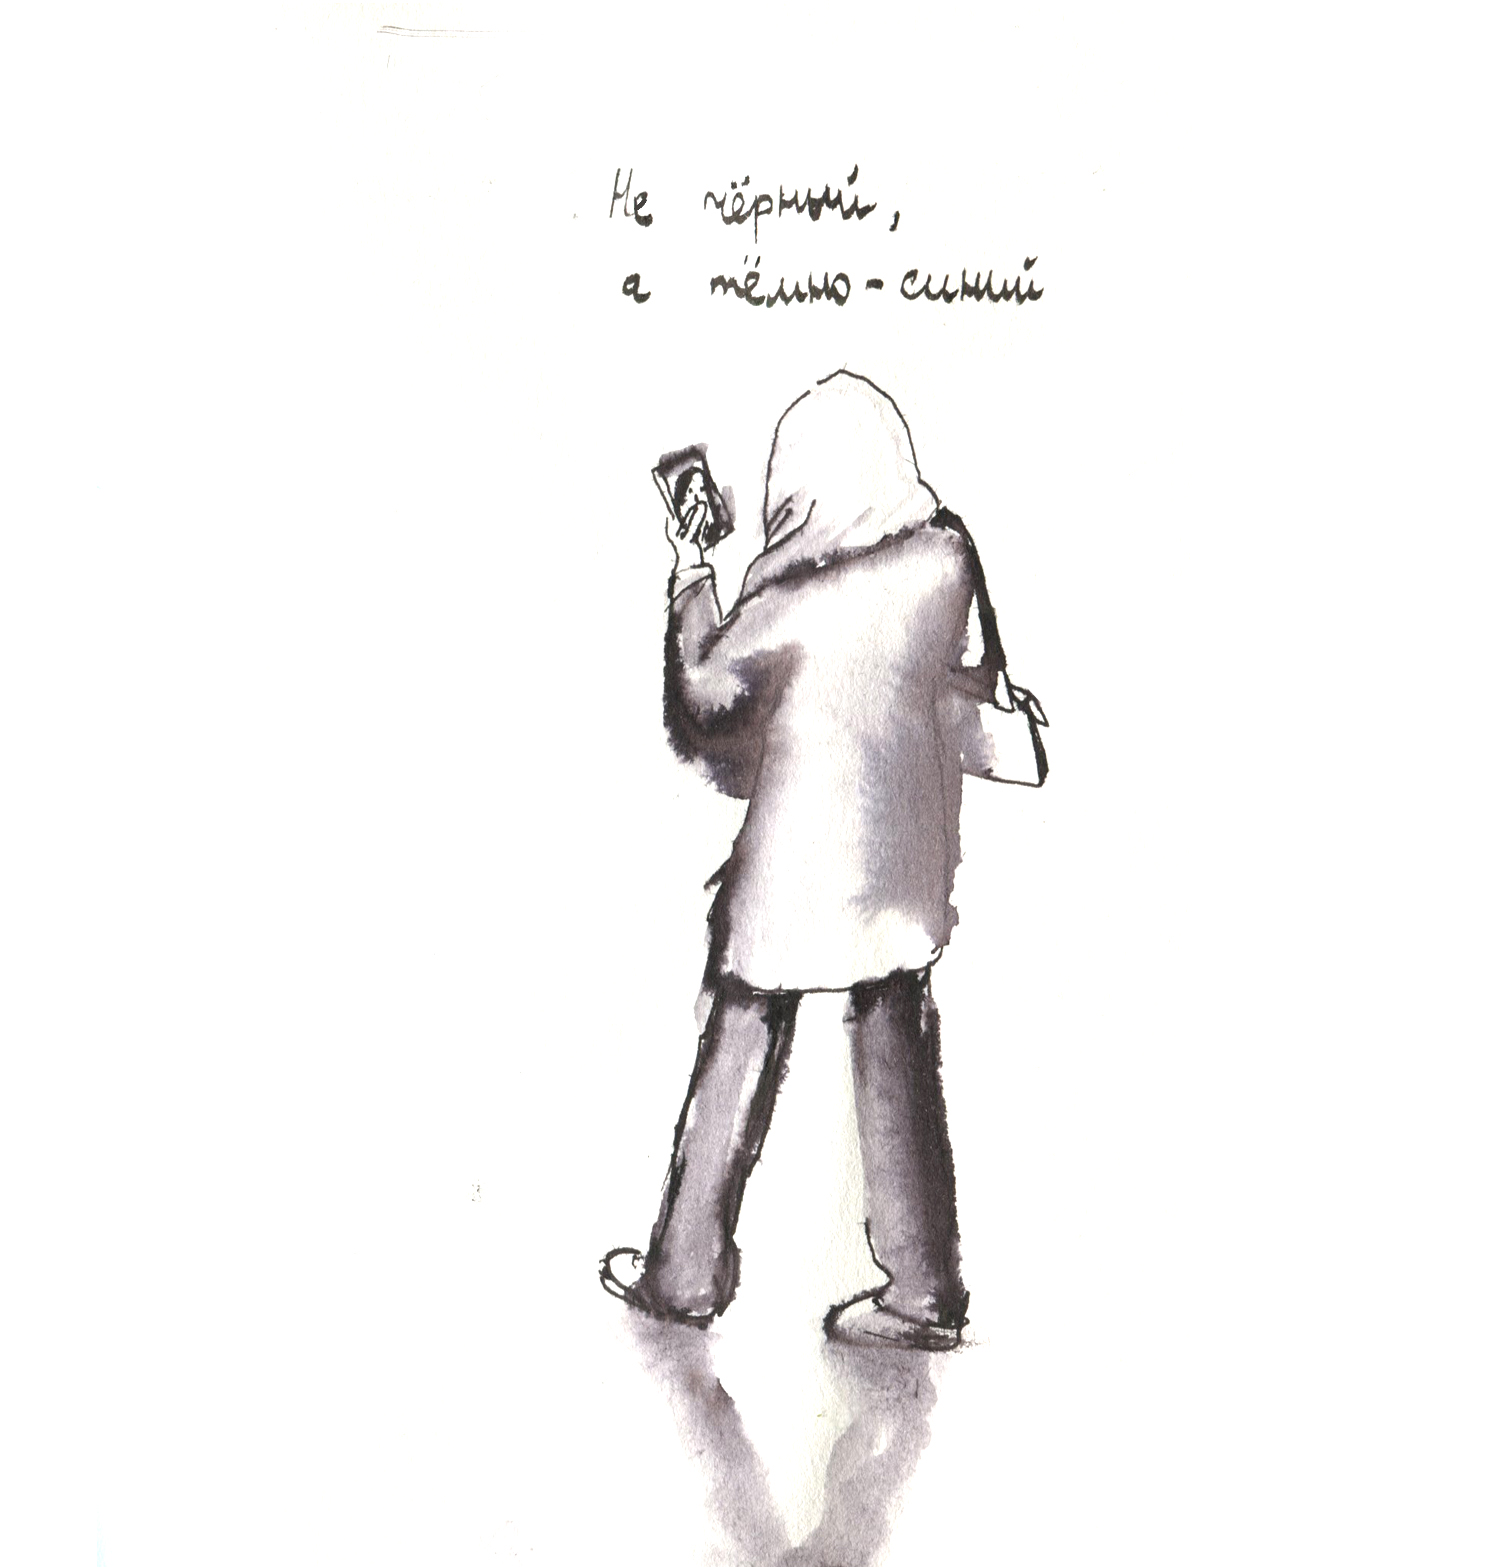 Не чёрный,
а тёмно-синий